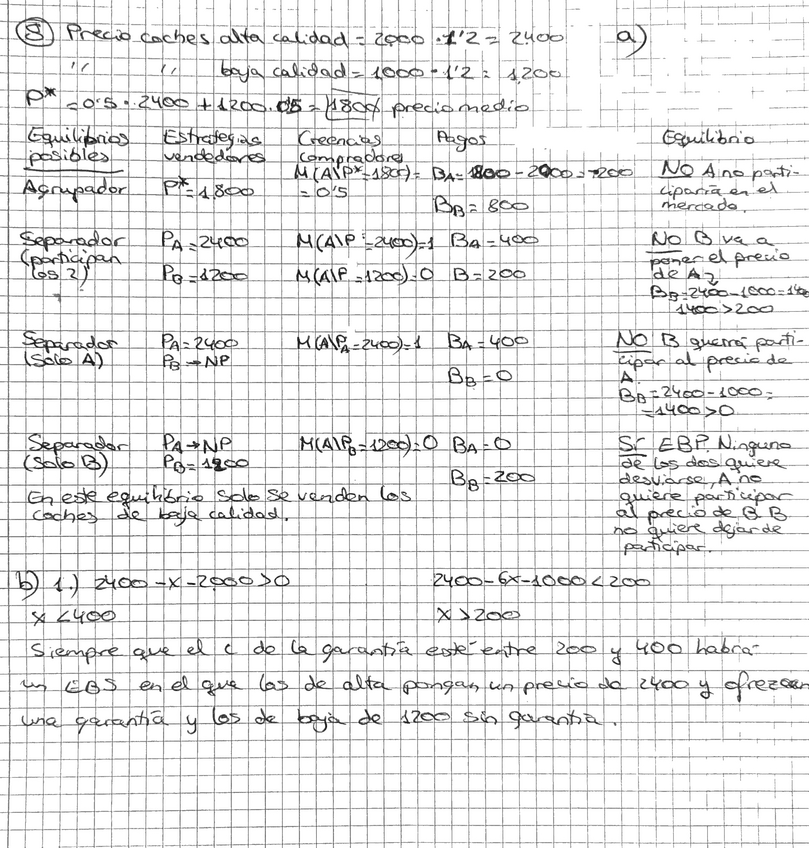 8 Precio coches alta calidad = 2000 · 1'2 = 2400 a)
'' '' baja calidad = 1000 · 1'2 = 1200
P* = 0'5 · 2400 + 1200 · 0'5 = 1800 precio medio
Equilibrios posibles Estrategias vendedores Creencias compradores Pagos Equilibrio
Agrupador P* = 1800 M(A\P*=1800) = 0'5 BA = 1800 - 2000 = -200 NO A no parti-
BB = 800 ciparía en el
mercado.
Separador PA = 2400 M(A\P=2400)=1 BA = 400 NO B va a
(participan PB = 1200 M(A\P=1200)=0 B = 200 poner el precio
los 2) de A
BB = 2400 - 1000 = 1400
1400 > 200
Separador PA = 2400 M(A\PA=2400)=1 BA = 400 NO B querrá parti-
(Solo A) PB → NP cipar al precio de
BB = 0 A.
BB = 2400 - 1000 =
= 1400 > 0
Separador PA → NP M(A\PB=1200)=0 BA = 0 SÍ EBP. Ninguno
(Solo B) PB = 1200 BB = 200 de los dos quiere
desviarse, A no
En este equilibrio solo se venden los quiere participar
coches de baja calidad. al precio de B B
no quiere dejar de
participar.
b) 1.) 2400 - x - 2000 > 0 2400 - 6x - 1000 < 200
x < 400 x > 200
Siempre que el c de la garantía esté entre 200 y 400 habrá
un EBS en el que los de alta pongan un precio de 2400 y ofrezcan
una garantía y los de baja de 1200 sin garantía.